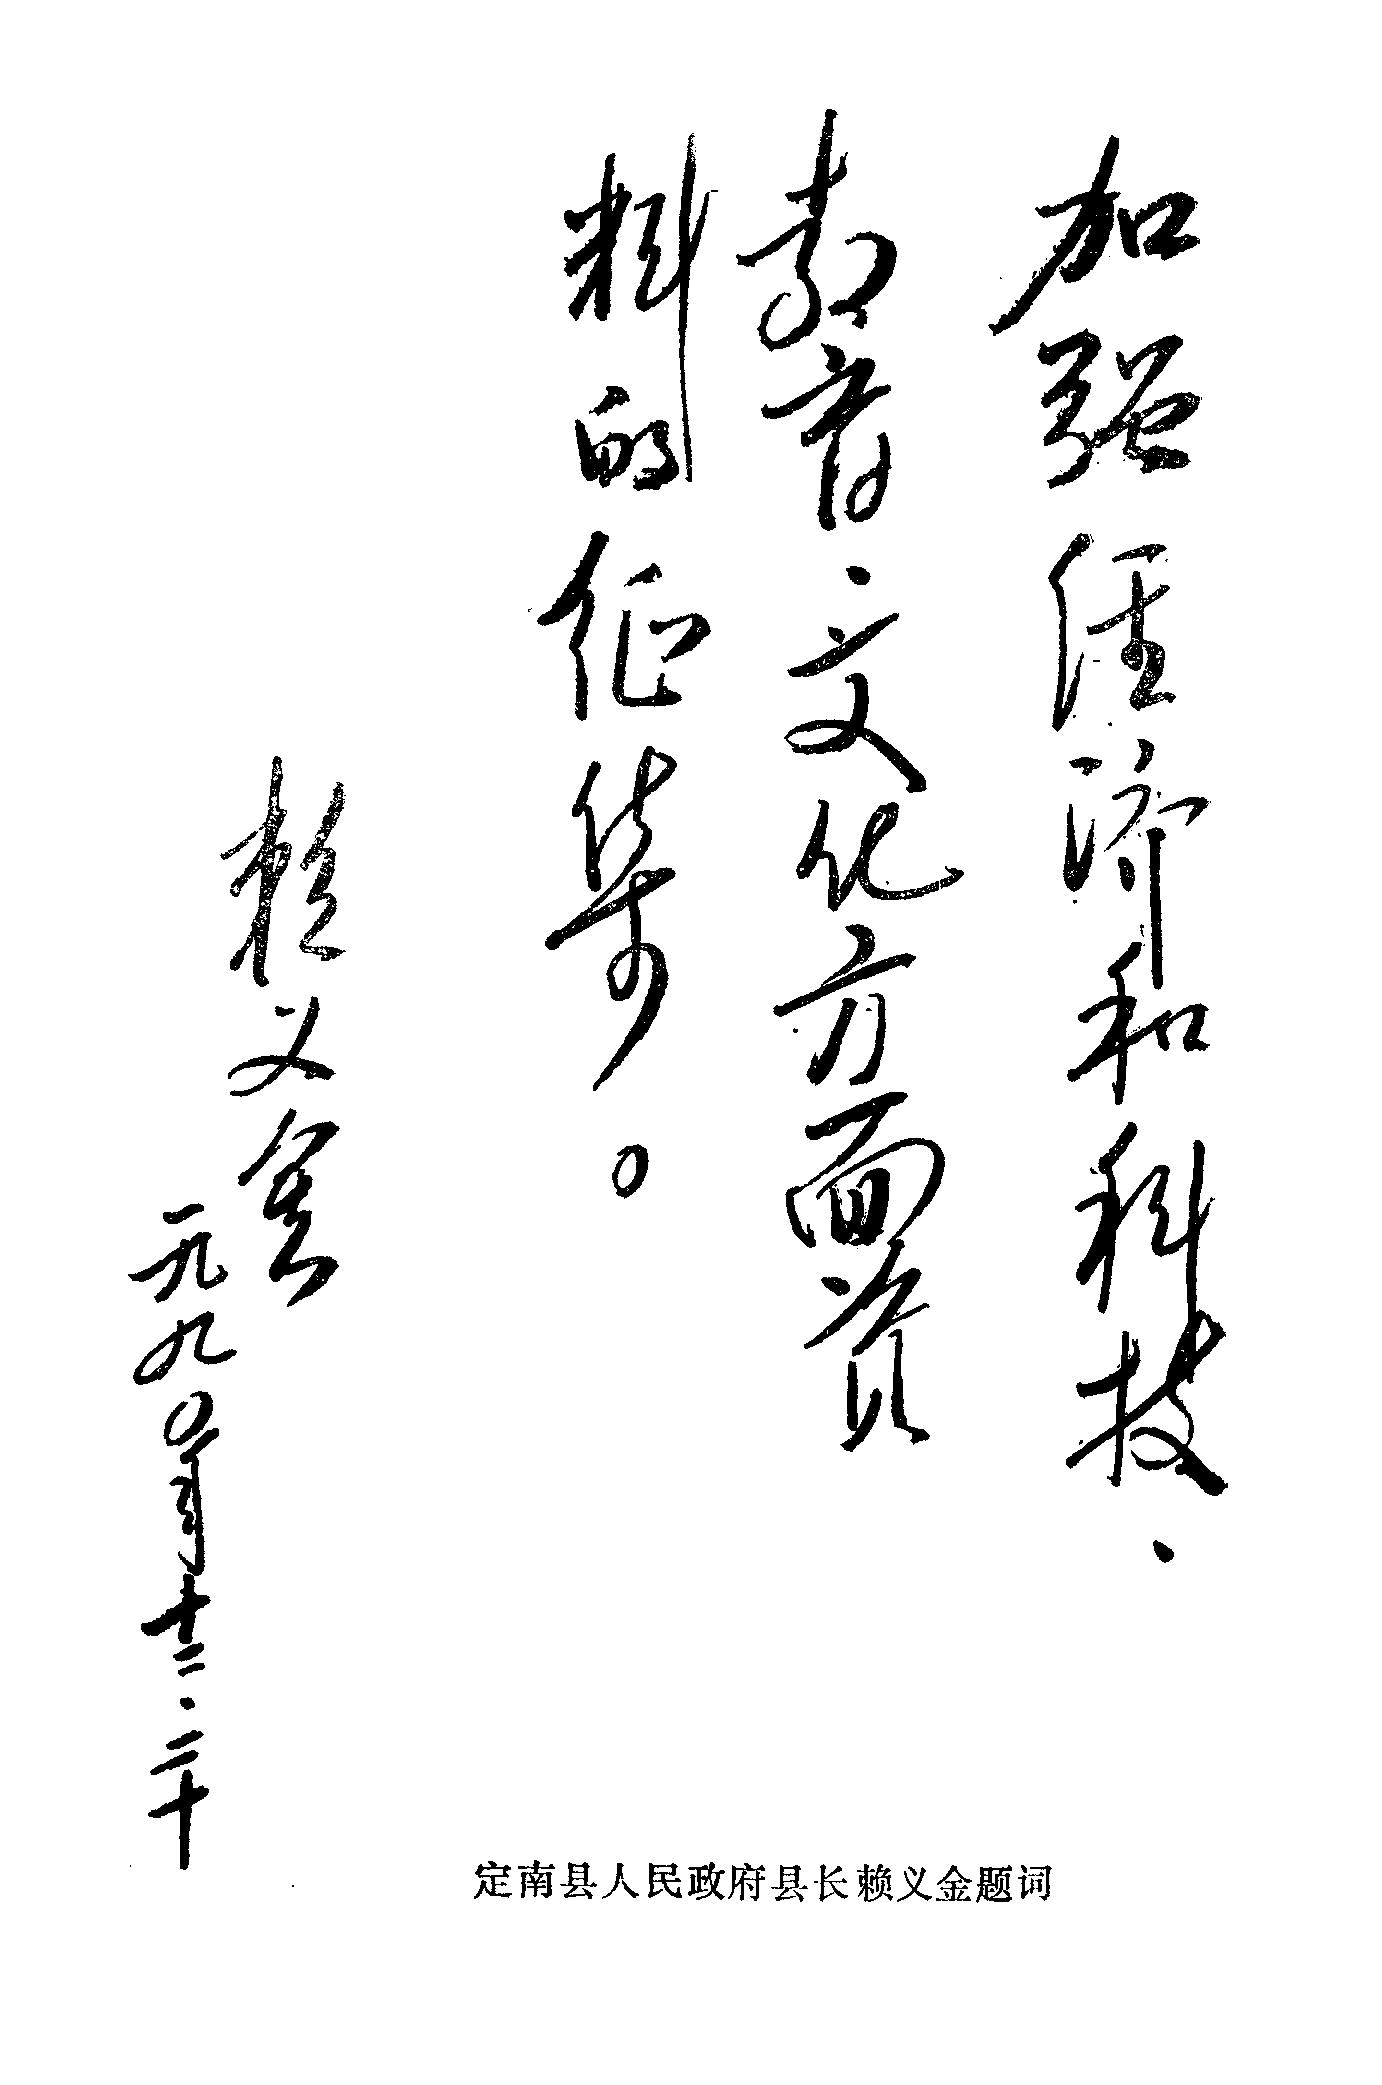 加强经济和科技、
教育、文化方面资
料的征集。
赖义金
一九九〇年十二·二十
定南县人民政府县长赖义金题词